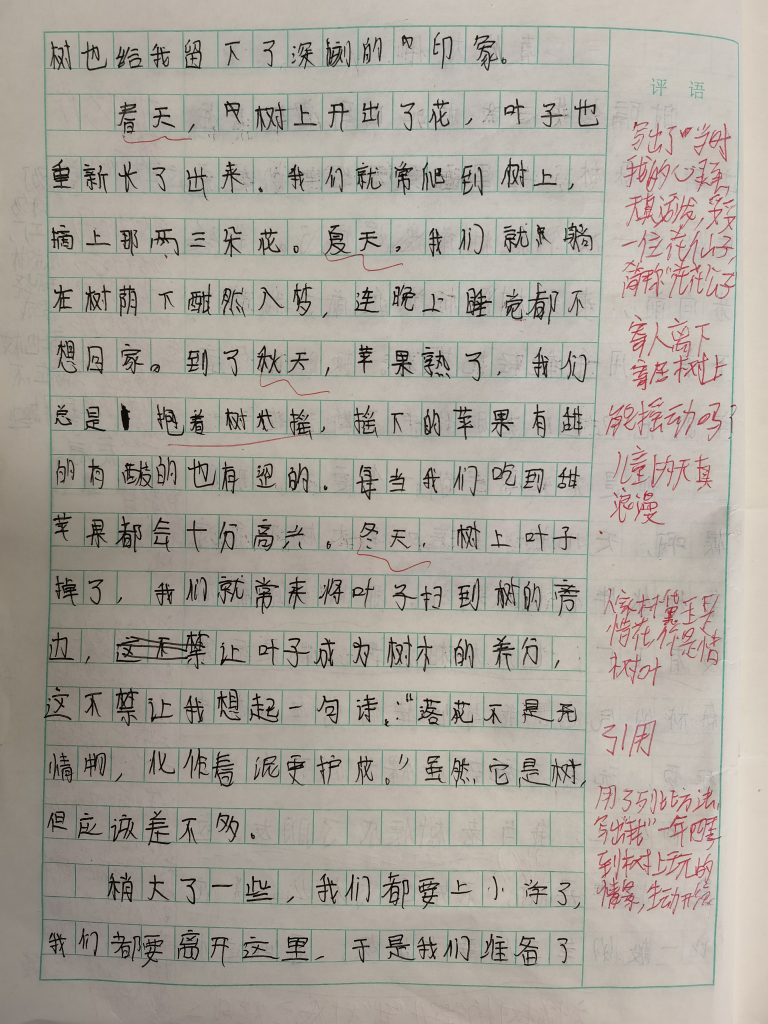 树也给我留下了深刻的印象。
春天，树上开出了花，叶子也
重新长了出来。我们就常爬到树上，
摘上那两三朵花。夏天，我们就躺
在树荫下酣然入梦，连晚上睡觉都不
想回家。到了秋天，苹果熟了，我们
总是抱着树木摇，摇下的苹果有甜
的有酸的也有涩的。每当我们吃到甜
苹果都会十分高兴。冬天，树上叶子
掉了，我们就常来将叶子扫到树的旁
边，让叶子成为树木的养分，
这不禁让我想起一句诗：“落花不是无
情物，化作春泥更护花。”虽然它是树，
但应该差不多。
稍大了一些，我们都要上小学了，
我们都要离开这里，于是我们准备了
评语
写出了“当时
我的心
天真活发
一位花仙子，
简称“花花公子
寄人篱下
寄在树上
能摇动吗？
儿童的天真
浪漫
人家林黛玉是
惜花你是惜
树叶
引用
用了列的方法，
写出“我”一年四季
到树上玩的
情景，生动形象